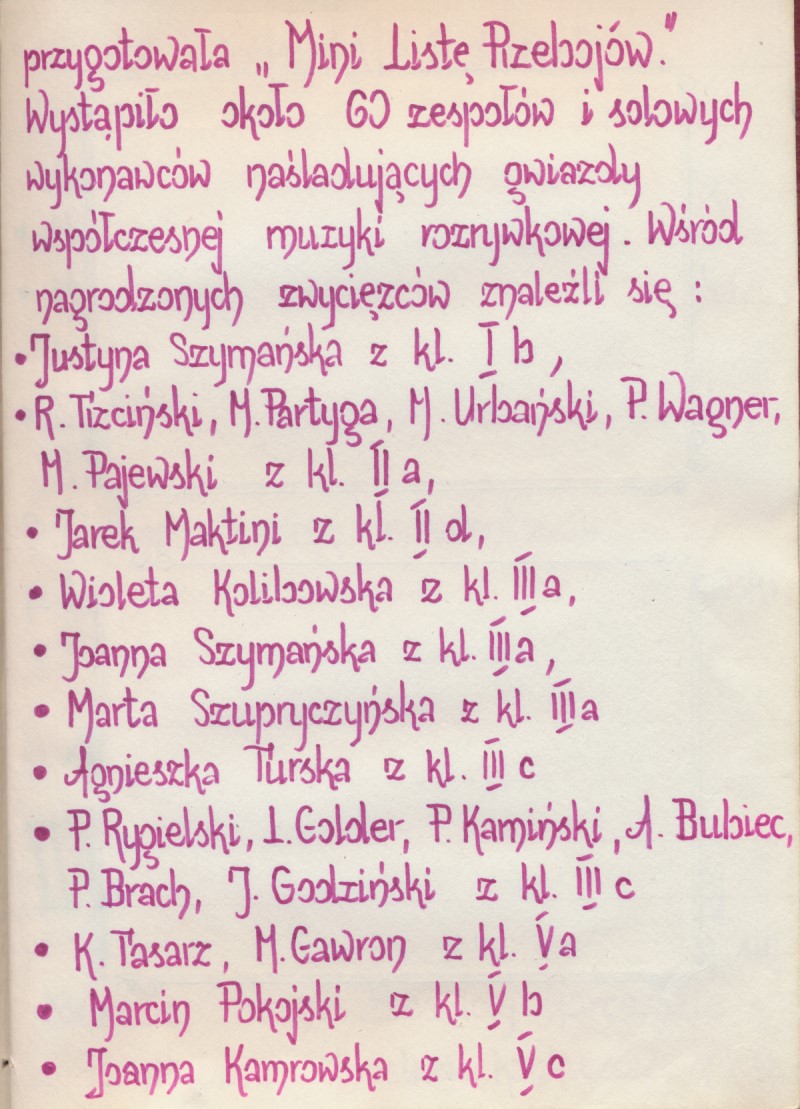 przygotowała „Mini Listę Przebojów."
Wystąpiło około 60 zespołów i solowych
wykonawców naśladujących gwiazdy
współczesnej muzyki rozrywkowej. Wśród
nagrodzonych zwycięzców znaleźli się :
• Justyna Szymańska z kl. I b ,
• R. Trzciński, M. Partyga, M. Urbański, P. Wagner,
M. Pajewski z kl. II a,
• Jarek Maktini z kl. II d,
• Wioleta Kolibowska z kl. III a,
• Joanna Szymańska z kl. III a ,
• Marta Szupryczyńska z kl. III a
• Agnieszka Turska z kl. III c
• P. Rygielski, Ł. Golder, P. Kamiński, A. Bubiec,
P. Brach, J. Godziński z kl. III c
• K. Tasarz , M. Gawron z kl. V a
• Marcin Pokojski z kl. V b
• Joanna Kamrowska z kl. V c